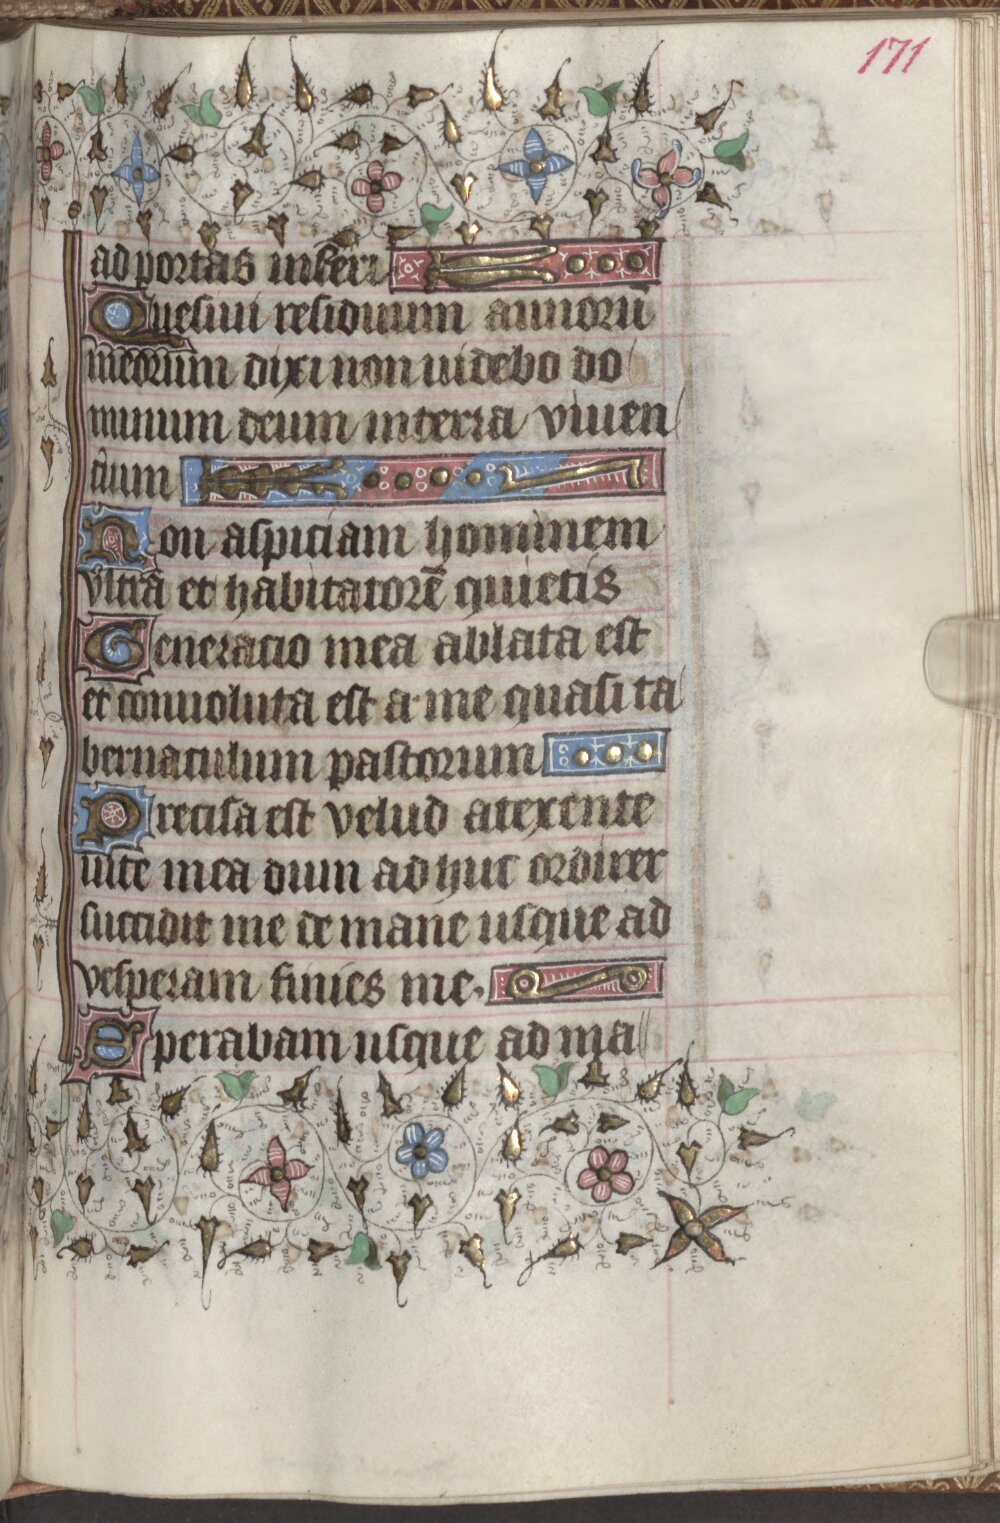 171
ad portas inferi
Quesiui residuum annorū
meorum dixi non uidebo do
minum deum in terra viuen
tium
Non aspiciam hominem
vltra et habitatorē quietis
Generacio mea ablata est
et conuoluta est a me quasi ta
bernaculum pastorum
Precisa est velud a texente
uite mea dum ad huc ordirer
succidit me de mane usque ad
vesperam finies me.
Sperabam usque ad ma